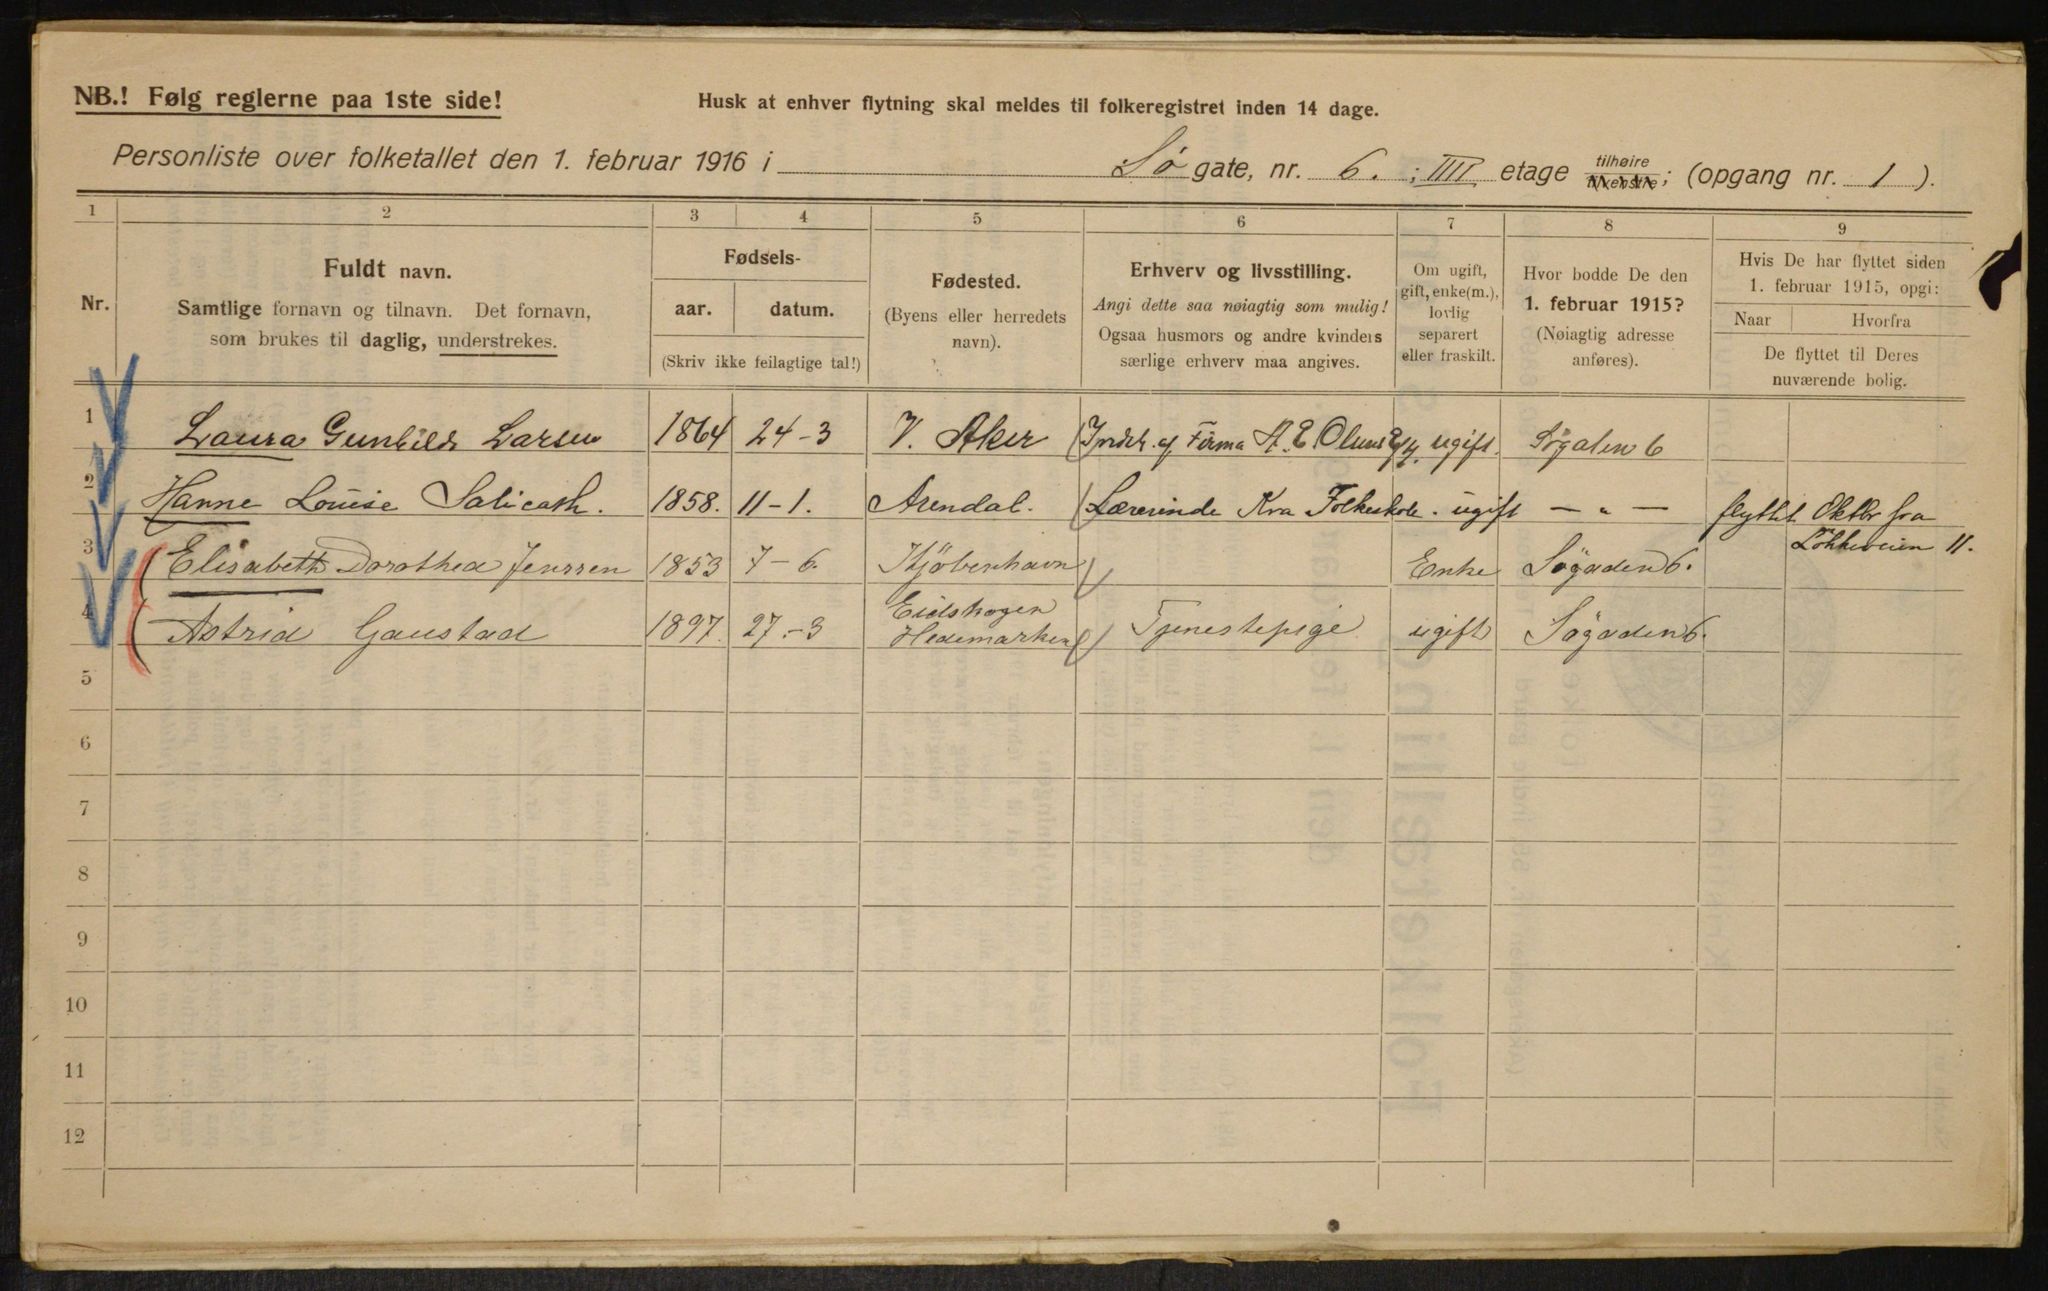 NB.! Følg reglerne paa 1ste side!
Husk at enhver flytning skal meldes til folkeregistret inden 14 dage.
Personliste over folketallet den 1. februar 1916 i Sø gate, nr. 6. ; IIII etage tilhøire tilvenstre; (opgang nr. 1 ).
1 2 3 4 5 6 7 8 9
Nr.
Fuldt navn.
Samtlige fornavn og tilnavn. Det fornavn,
som brukes til daglig, understrekes.
Fødsels-
aar. datum.
(Skriv ikke feilagtige tal!)
Fødested.
(Byens eller herredets
navn).
Erhverv og livsstilling.
Angi dette saa nøiagtig som mulig!
Ogsaa husmors og andre kvinders
særlige erhverv maa angives.
Om ugift,
gift, enke(m.),
lovlig
separert
eller fraskilt.
Hvor bodde De den
1. februar 1915?
(Nøiagtig adresse
anføres).
Hvis De har flyttet siden
1. februar 1915, opgi:
Naar Hvorfra
De flyttet til Deres
nuværende bolig.
1 Laura Gunhild Larsen 1864 24-3 V. Aker Indeh. af Firma A. E. ugift. Søgaden 6
2 Hanne Louise Salicath. 1858. 11-1. Arendal. Lærerinde Kra Folkeskole. ugift — " — flyttet Oktbr fra
Løkkeveien 11.
3 Elisabeth Dorothea Jenssen 1853 7-6. Kjöbenhavn Enke Søgaden 6.
4 Astrid Gaustad 1897. 27.-3 Eidskogen
Hedemarken Tjenestepige ugift Søgaden 6.
5
6
7
8
9
10
11
12